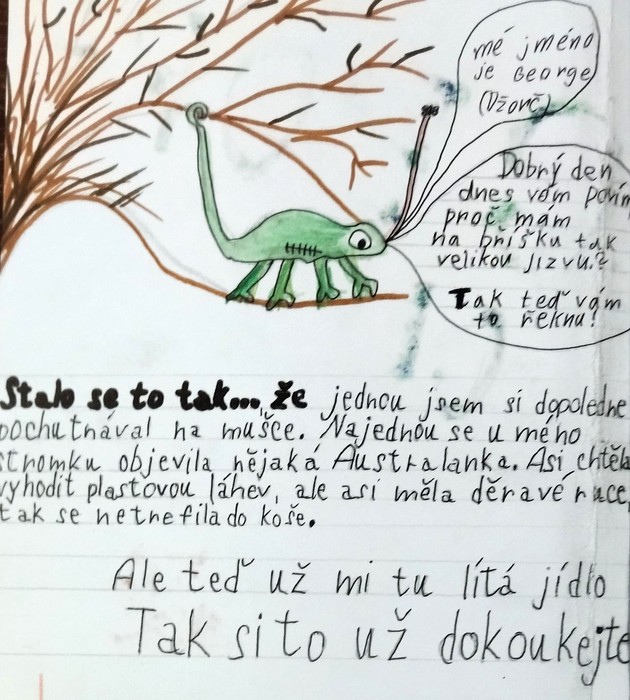 mé jméno
je George
(Džorč)
Dobrý den
dnes vám povím
proč mám
na bříšku tak
velikou jizvu.?
Tak teď vám
to řeknu!
Stalo se to tak... že jednou jsem si dopoledne
pochutnával na mušce. Najednou se u mého
stromku objevila nějaká Australanka. Asi chtěla
vyhodit plastovou láhev, ale asi měla děravé ruce,
tak se netrefila do koše.
Ale teď už mi tu lítá jídlo
Tak si to už dokoukejte